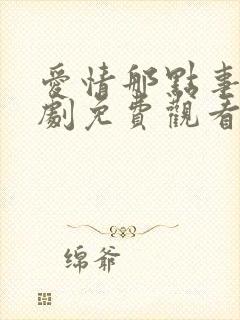 愛情那點事
劇免費觀看
绵爷